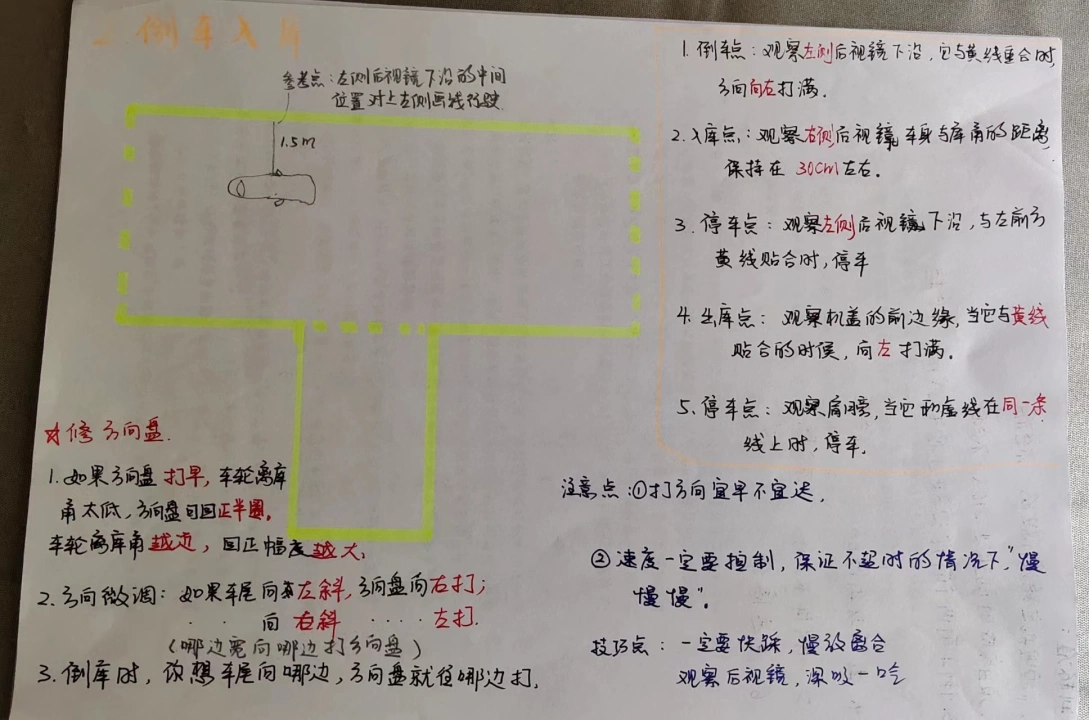 二.倒车入库
参考点：左侧后视镜下沿的中间
位置对上左侧画线行驶
1.5m
1. 倒车点：观察左侧后视镜下沿，它与黄线重合时，
方向向左打满.
2. 入库点：观察右侧后视镜，车身与库角的距离，
保持在 30cm左右.
3. 停车点：观察左侧后视镜下沿，与左前方
黄线贴合时，停车
4. 出库点：观察机盖的前边缘，当它与黄线
贴合的时候，向左打满.
5. 停车点：观察肩膀，当它和虚线在同一条
线上时，停车.
☆修方向盘.
1. 如果方向盘打早，车轮离库
角太低，方向盘可回正半圈.
车轮离库角越近，回正幅度越大.
2. 方向微调：如果车尾向左斜，方向盘向右打；
· · 向右斜 ···· 左打.
（哪边宽向哪边打方向盘）
3. 倒库时，你想车尾向哪边，方向盘就往哪边打.
注意点：①打方向宜早不宜迟.
②速度一定要控制，保证不超时的情况下"慢
慢慢".
技巧点：一定要快踩，慢放离合
观察后视镜，深吸一口气